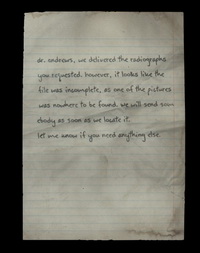 dr. andrews, we delivered the radiographs
you requested. however, it looks like the
file was incomplete, as one of the pictures
was nowhere to be found. we will send som
ebody as soon as we locate it.
let me know if you need anything else